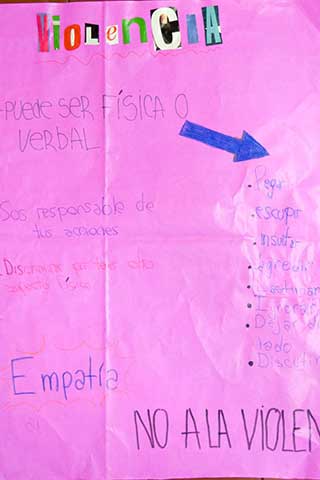 ViOLENCiA
-PUEDE SER FÍSICA O
VERBAL
Sos responsable de
tus acciones
. Discriminar por tener otro
aspecto físico
Empatía
. Pegar
. escupir
. insultar
. agredir
. Lastimar
. Ignorar
. Dejar de
lado
. Discutir
NO A LA VIOLEN